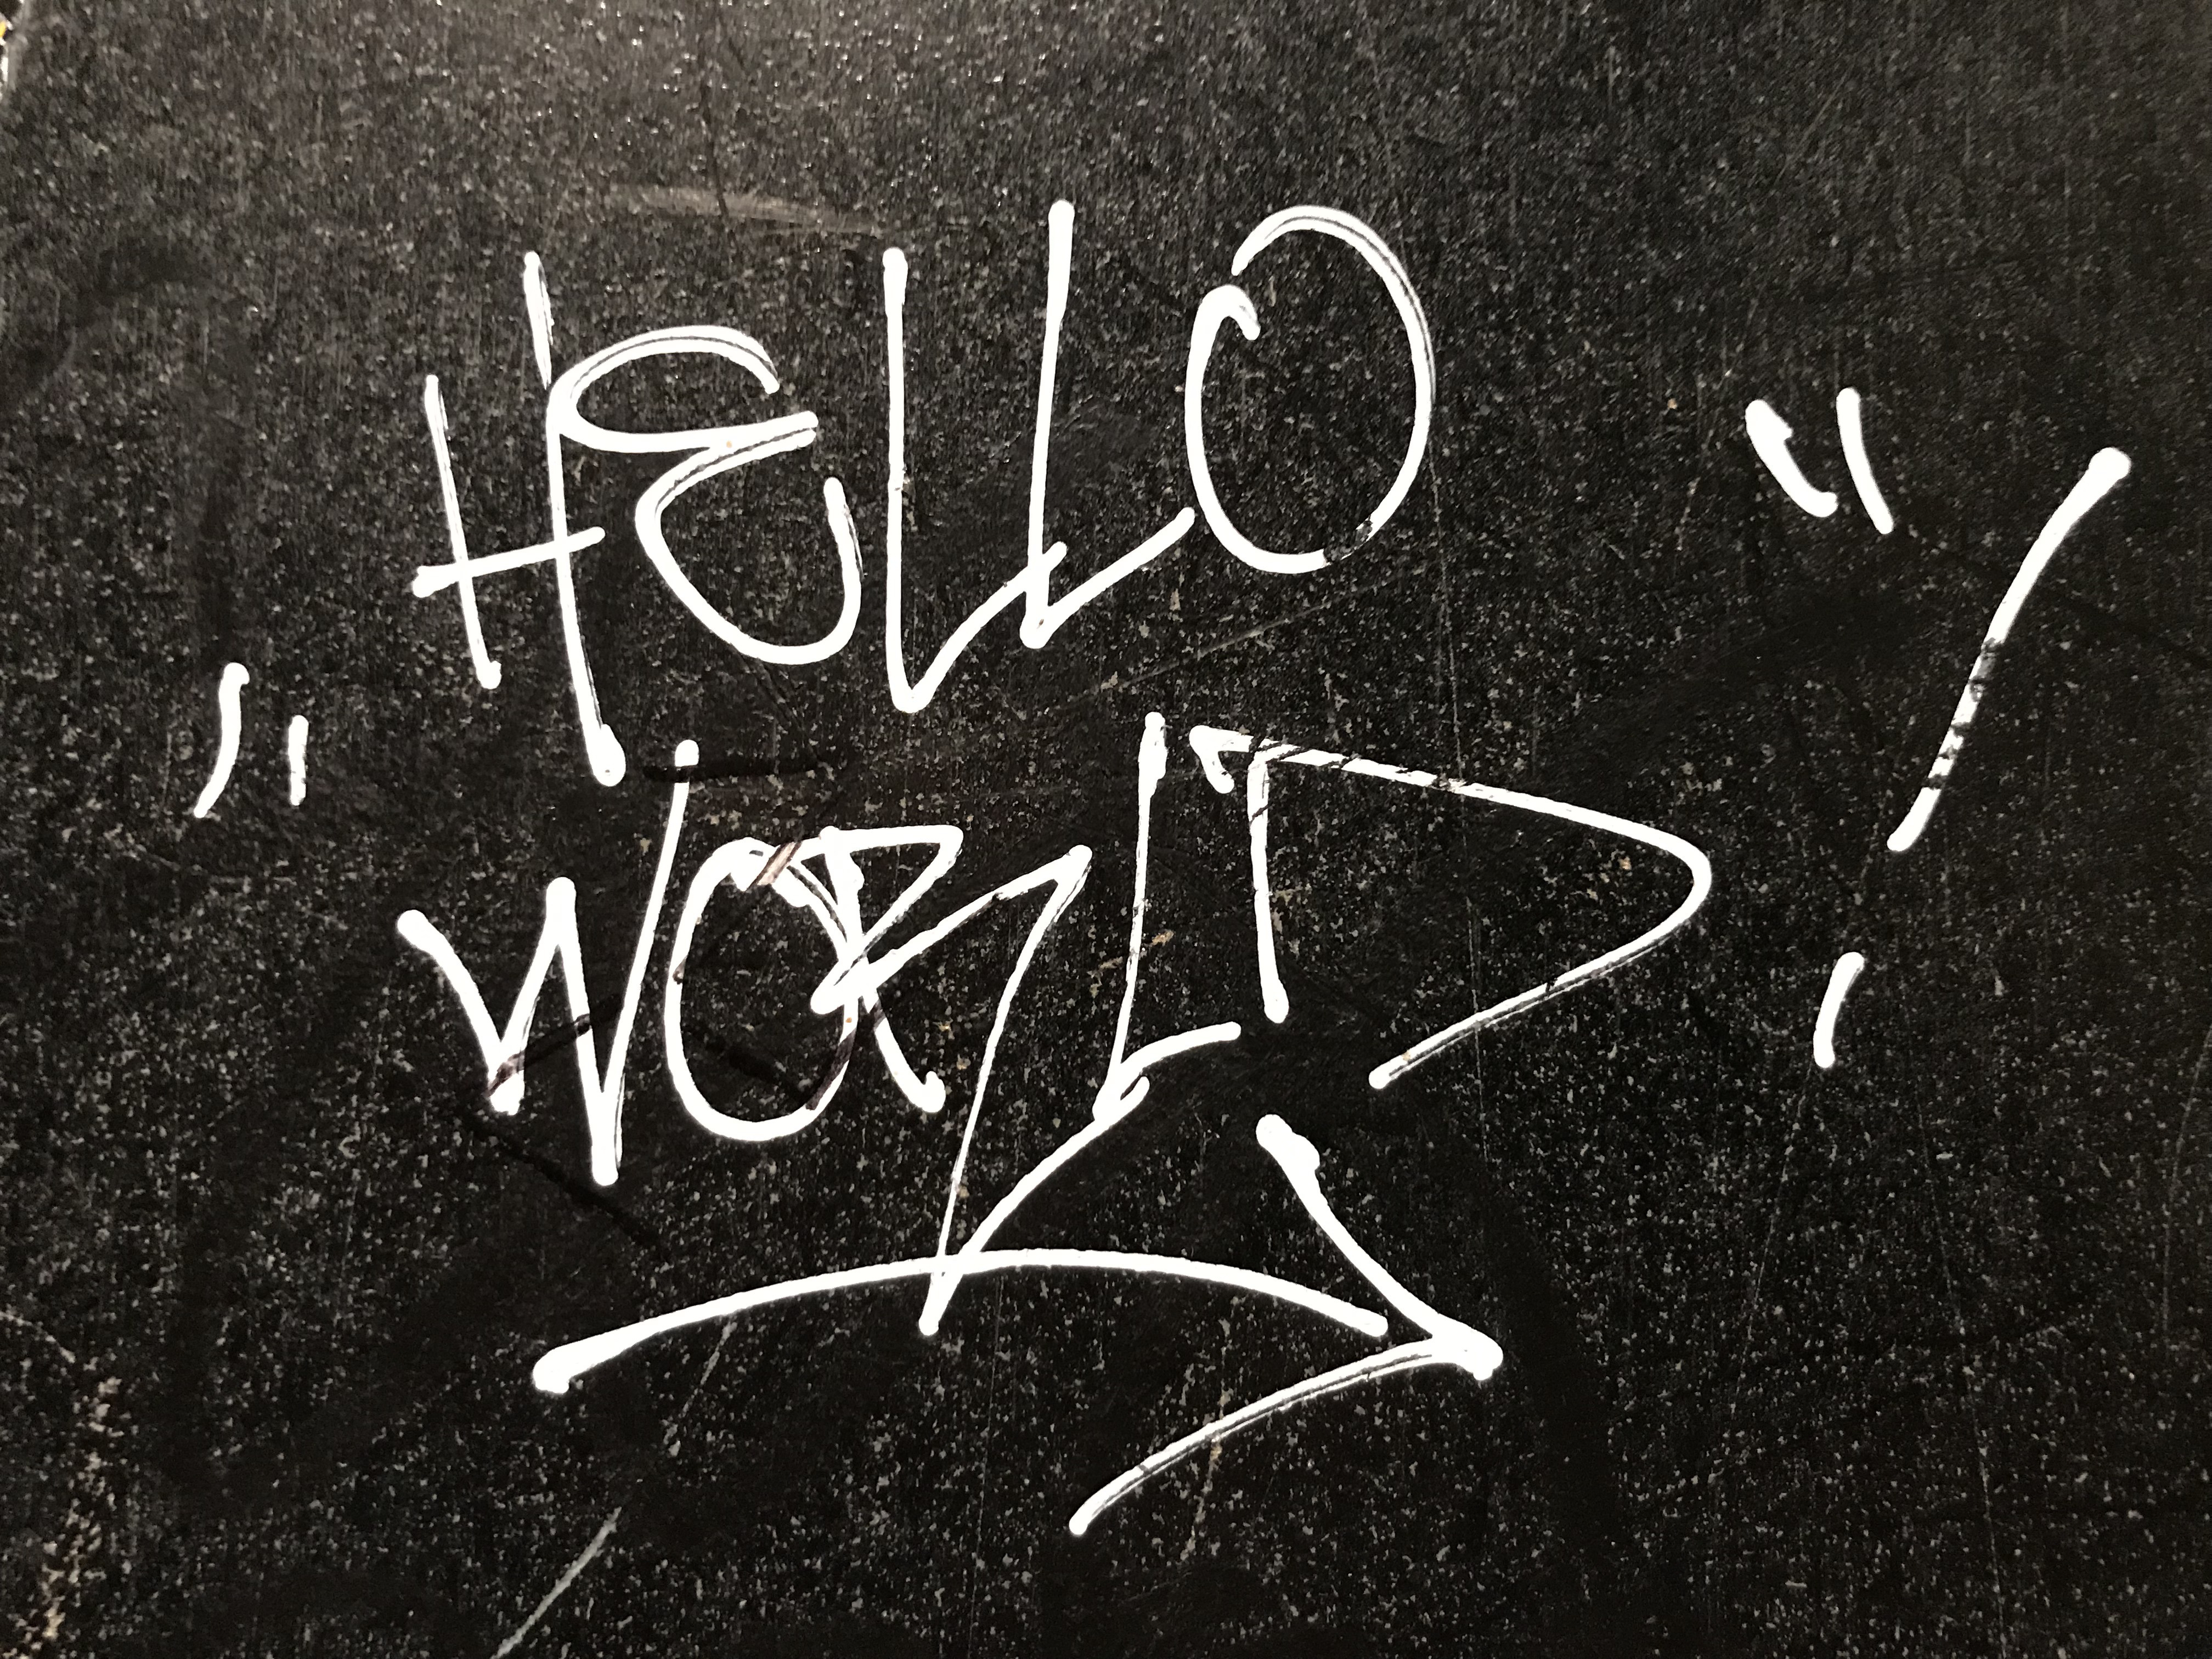 HELLO
"WORLD"!